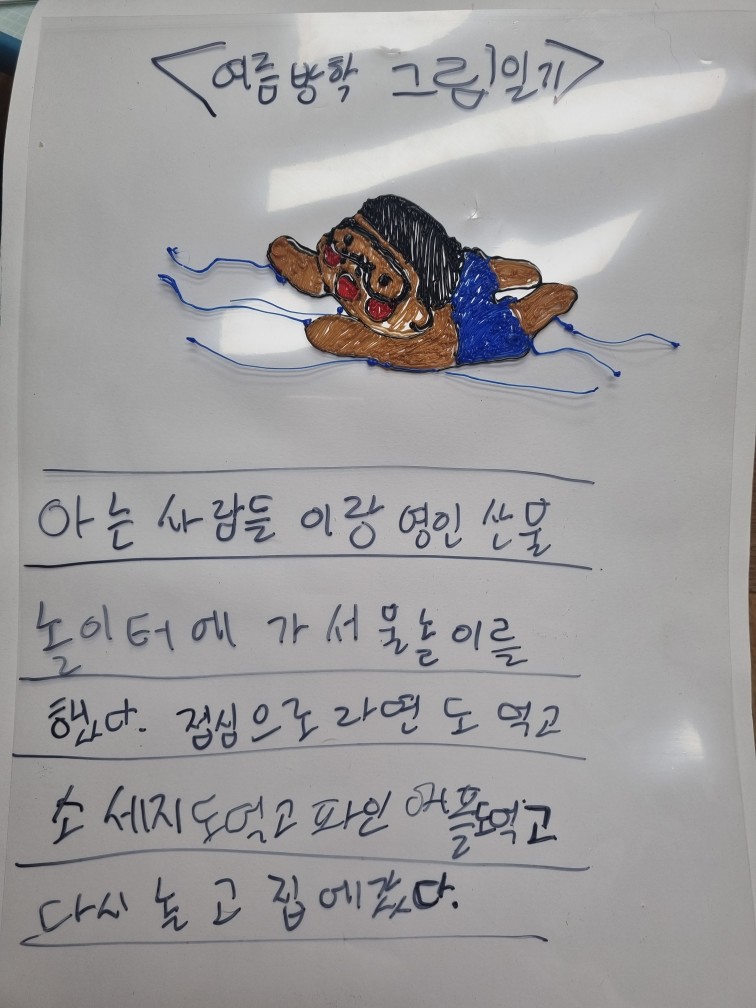 <여름방학 그림일기>
아는 사람들이랑 영인산물
놀이터에 가서 물놀이를
했다. 점심으로 라면도 먹고
소세지도먹고 파인애플도먹고
다시 놀고 집에갔다.